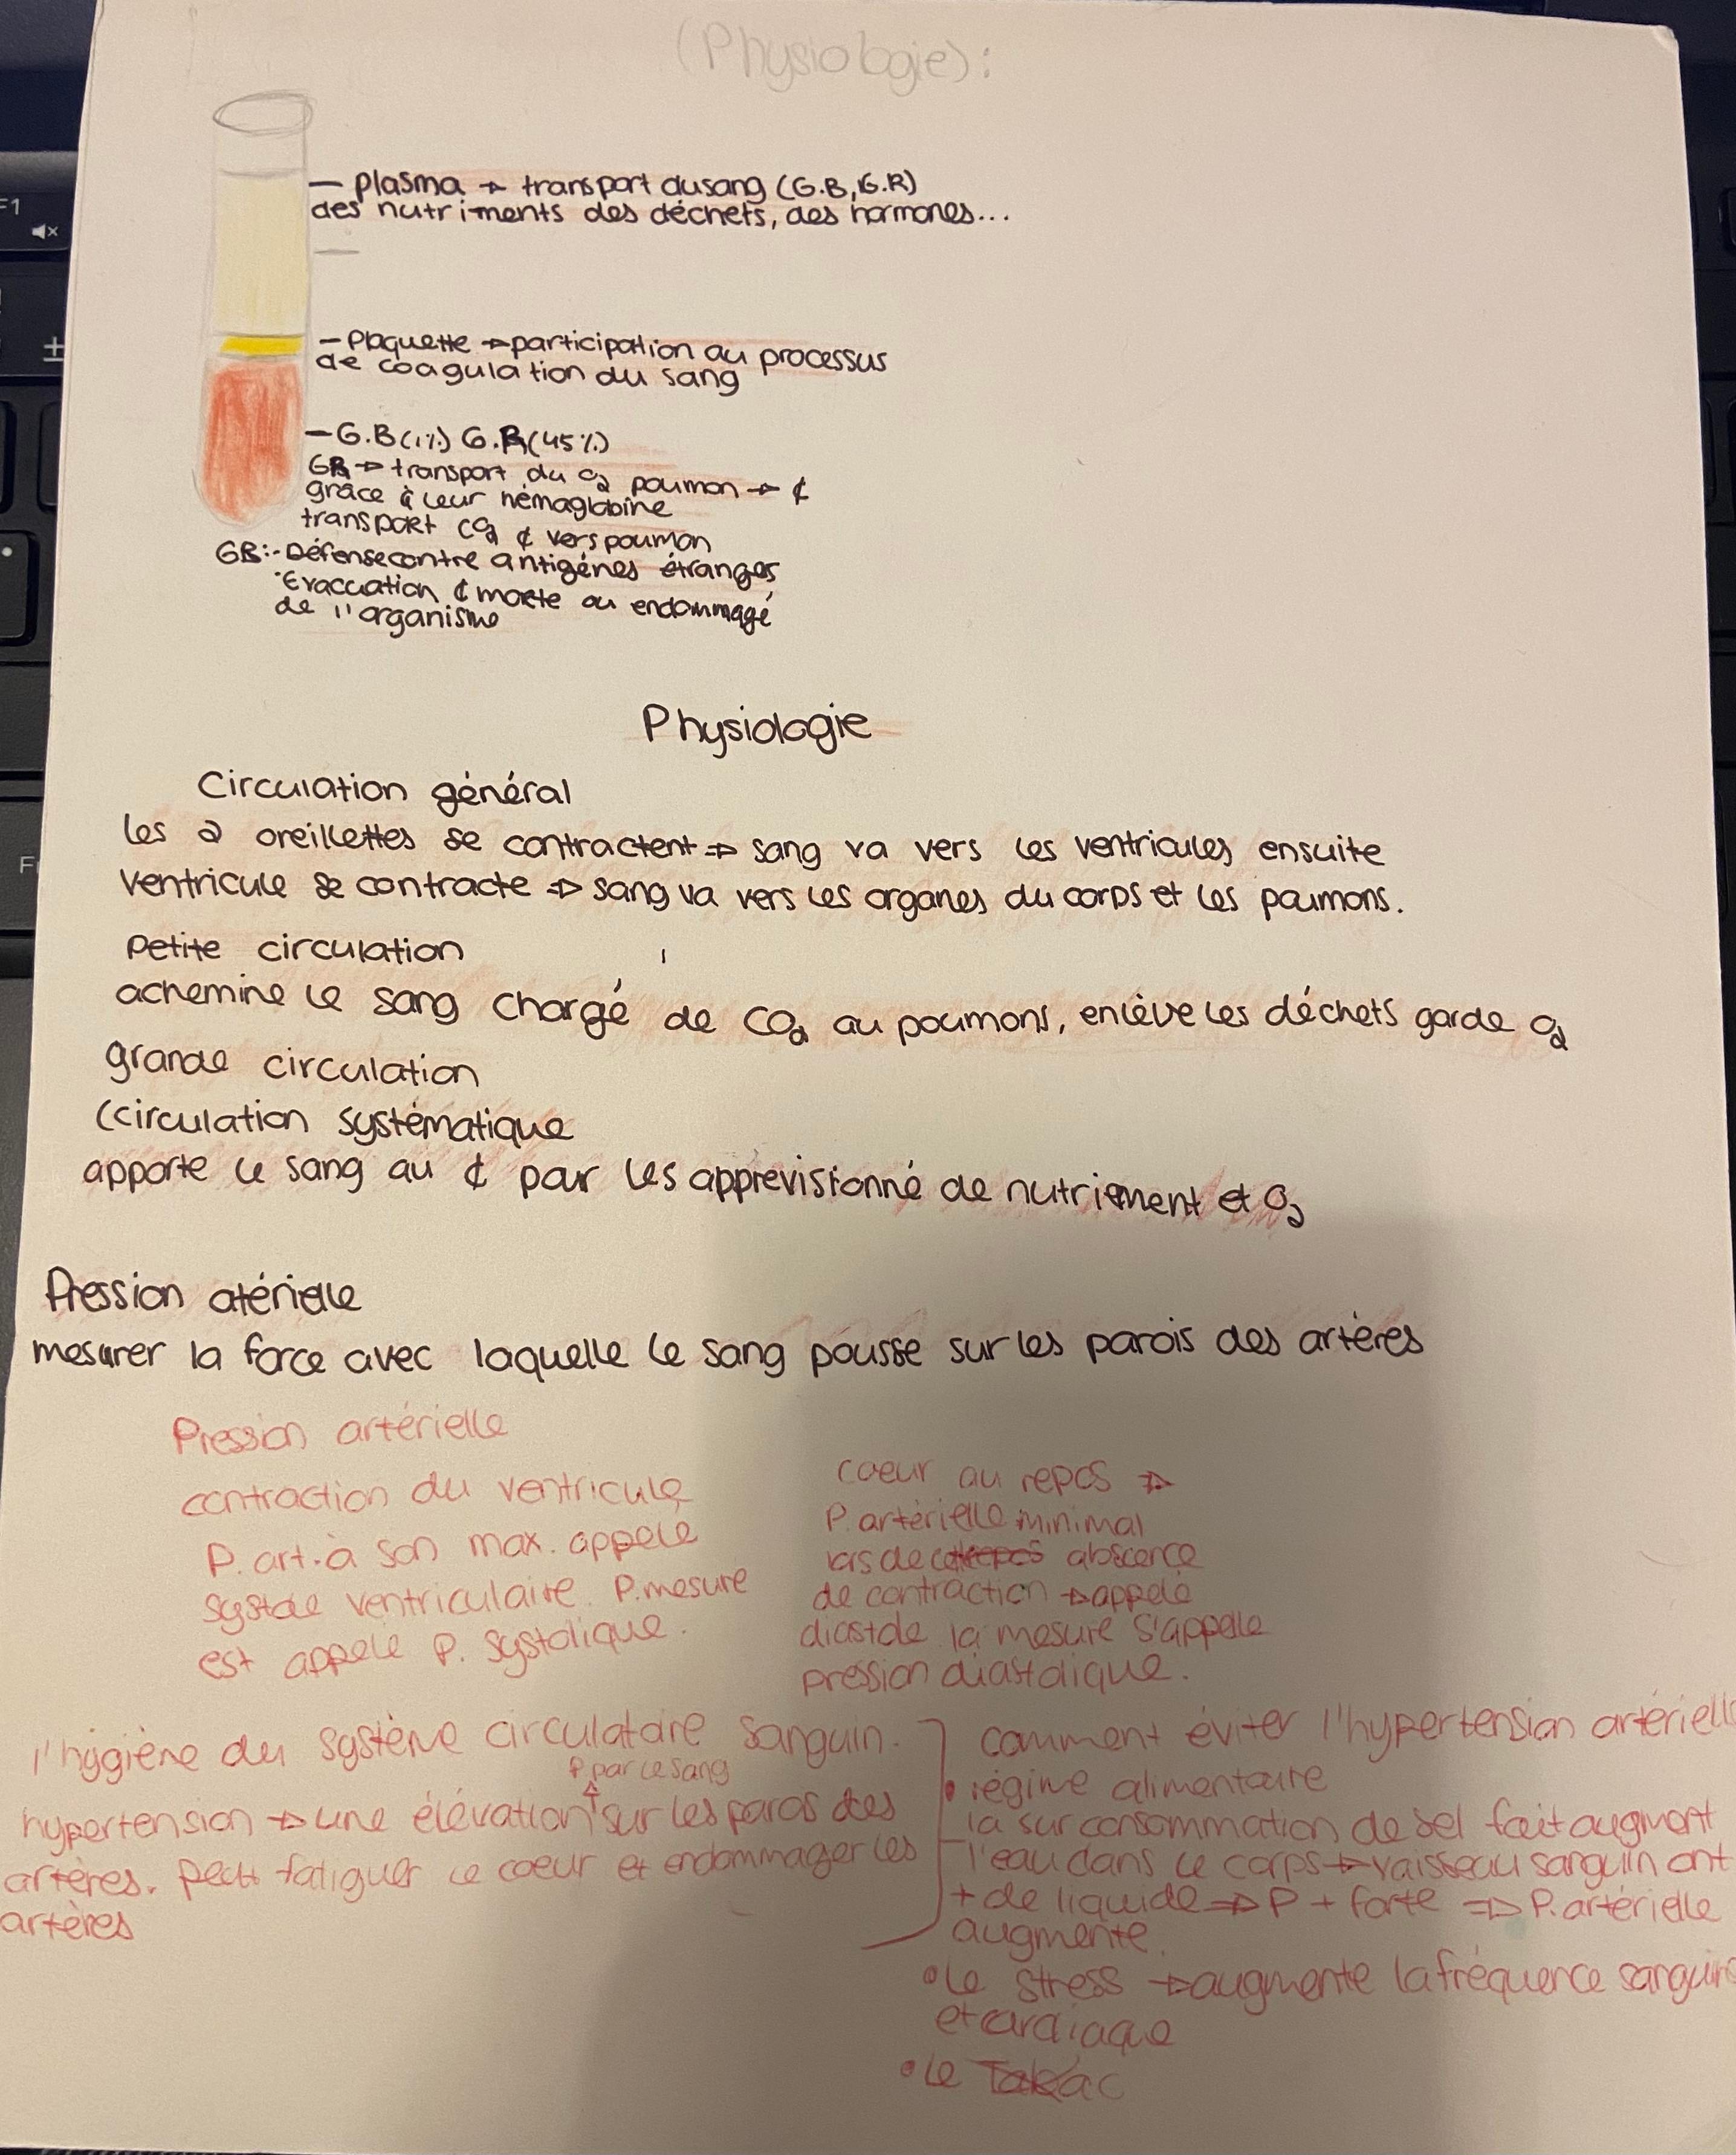 (Physiologie):
— plasma → transport du sang (G.B, G.R)
des nutriments des déchets, des hormones...
— Plaquette → participation au processus
de coagulation du sang
— G.B (1%) G.R (45%)
GR → transport du O2 poumon → ¢
grâce à leur hémaglobine
transport CO2 ¢ vers poumon
GB: - Défense contre antigénes étranges
· Evaccuation ¢ morte ou endommagé
de l'organisme
Physiologie
Circulation général
les 2 oreillettes se contractent ⇒ sang va vers les ventricules ensuite
ventricule se contracte ⇒ sang va vers les organes du corps et les poumons.
Petite circulation
achemine le sang chargé de CO2 au poumons, enlève les déchets garde O2
grande circulation
(circulation systématique
apporte le sang au ¢ pour les apprevisionné de nutriment et O2
Pression atérielle
mesurer la force avec laquelle le sang pousse sur les parois des artères
Pression artérielle
contraction du ventricule
P. art. à son max. appelé
systole ventriculaire. P. mesure
est appelé P. systolique.
coeur au repos ⇒
P. artérielle minimal
lors de abscence
de contraction → appelé
diastole la mesure s'appelle
pression diastolique.
l'hygiène du système circulatoire sanguin.
P par le sang
hypertension → une élévation ↑ sur les parois des
artères. peut fatiguer le coeur et endommager les
artères
comment éviter l'hypertension artérielle
• régime alimentaire
la surconsommation de sel fait augment
l'eau dans le corps → vaisseau sanguin ont
+ de liquide ⇒ P + forte ⇒ P. artérielle
augmente.
• le stress → augmente la fréquence sanguine
et cardiaque
• le Tabac